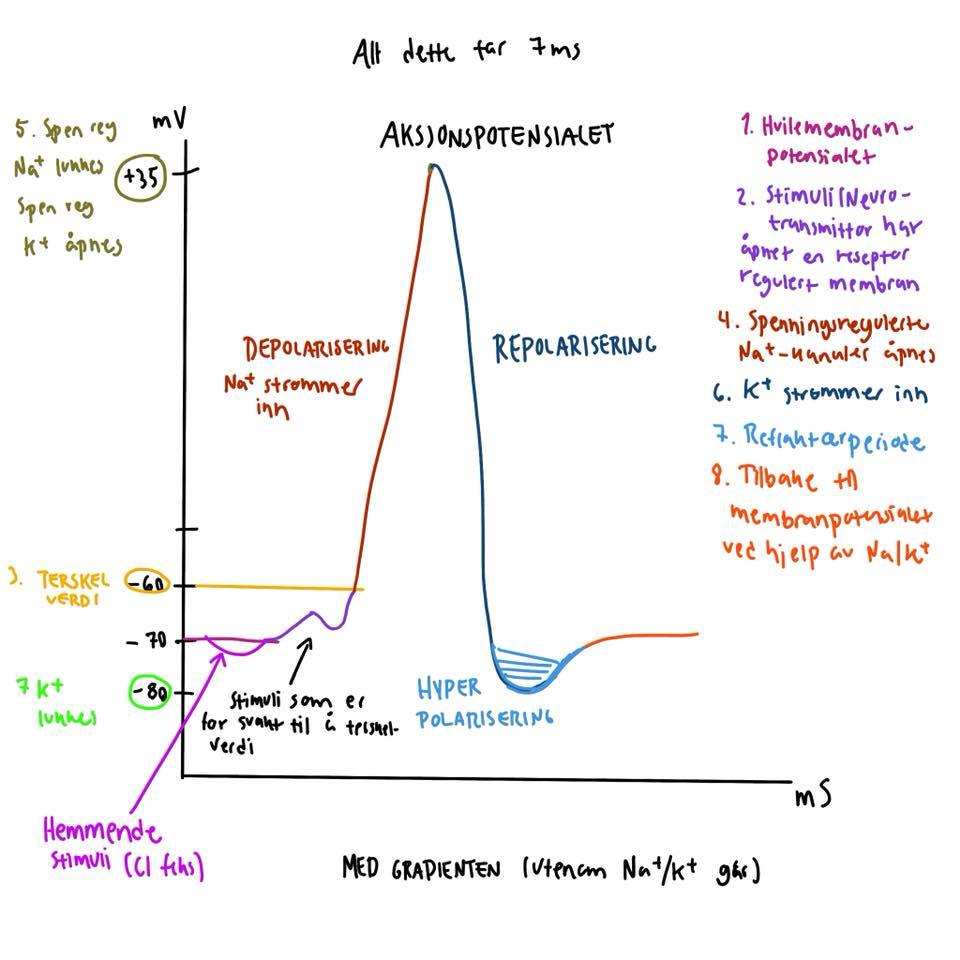 Alt dette tar 7ms
mV
AKSJONSPOTENSIALET
5. Spen reg
Na⁺ lukkes
Spen reg
K⁺ åpnes
+35
1. Hvilemembran-
potensialet
2. Stimuli/Nevro-
transmittor har
åpnet en reseptor
regulert membran
4. Spenningsregulerte
Na⁺-kanaler åpnes
6. K⁺ strømmer inn
7. Refraktærperiode
8. Tilbake til
membranpotensialet
ved hjelp av Na/K⁺
DEPOLARISERING
Na⁺ strømmer
inn
REPOLARISERING
3. TERSKEL
VERDI
-60
-70
-80
7 K⁺
lukkes
Stimuli som er
for svakt til å terskel-
verdi
HYPER
POLARISERING
mS
Hemmende
stimuli (Cl
MED GRADIENTEN (utenom Na⁺/K⁺